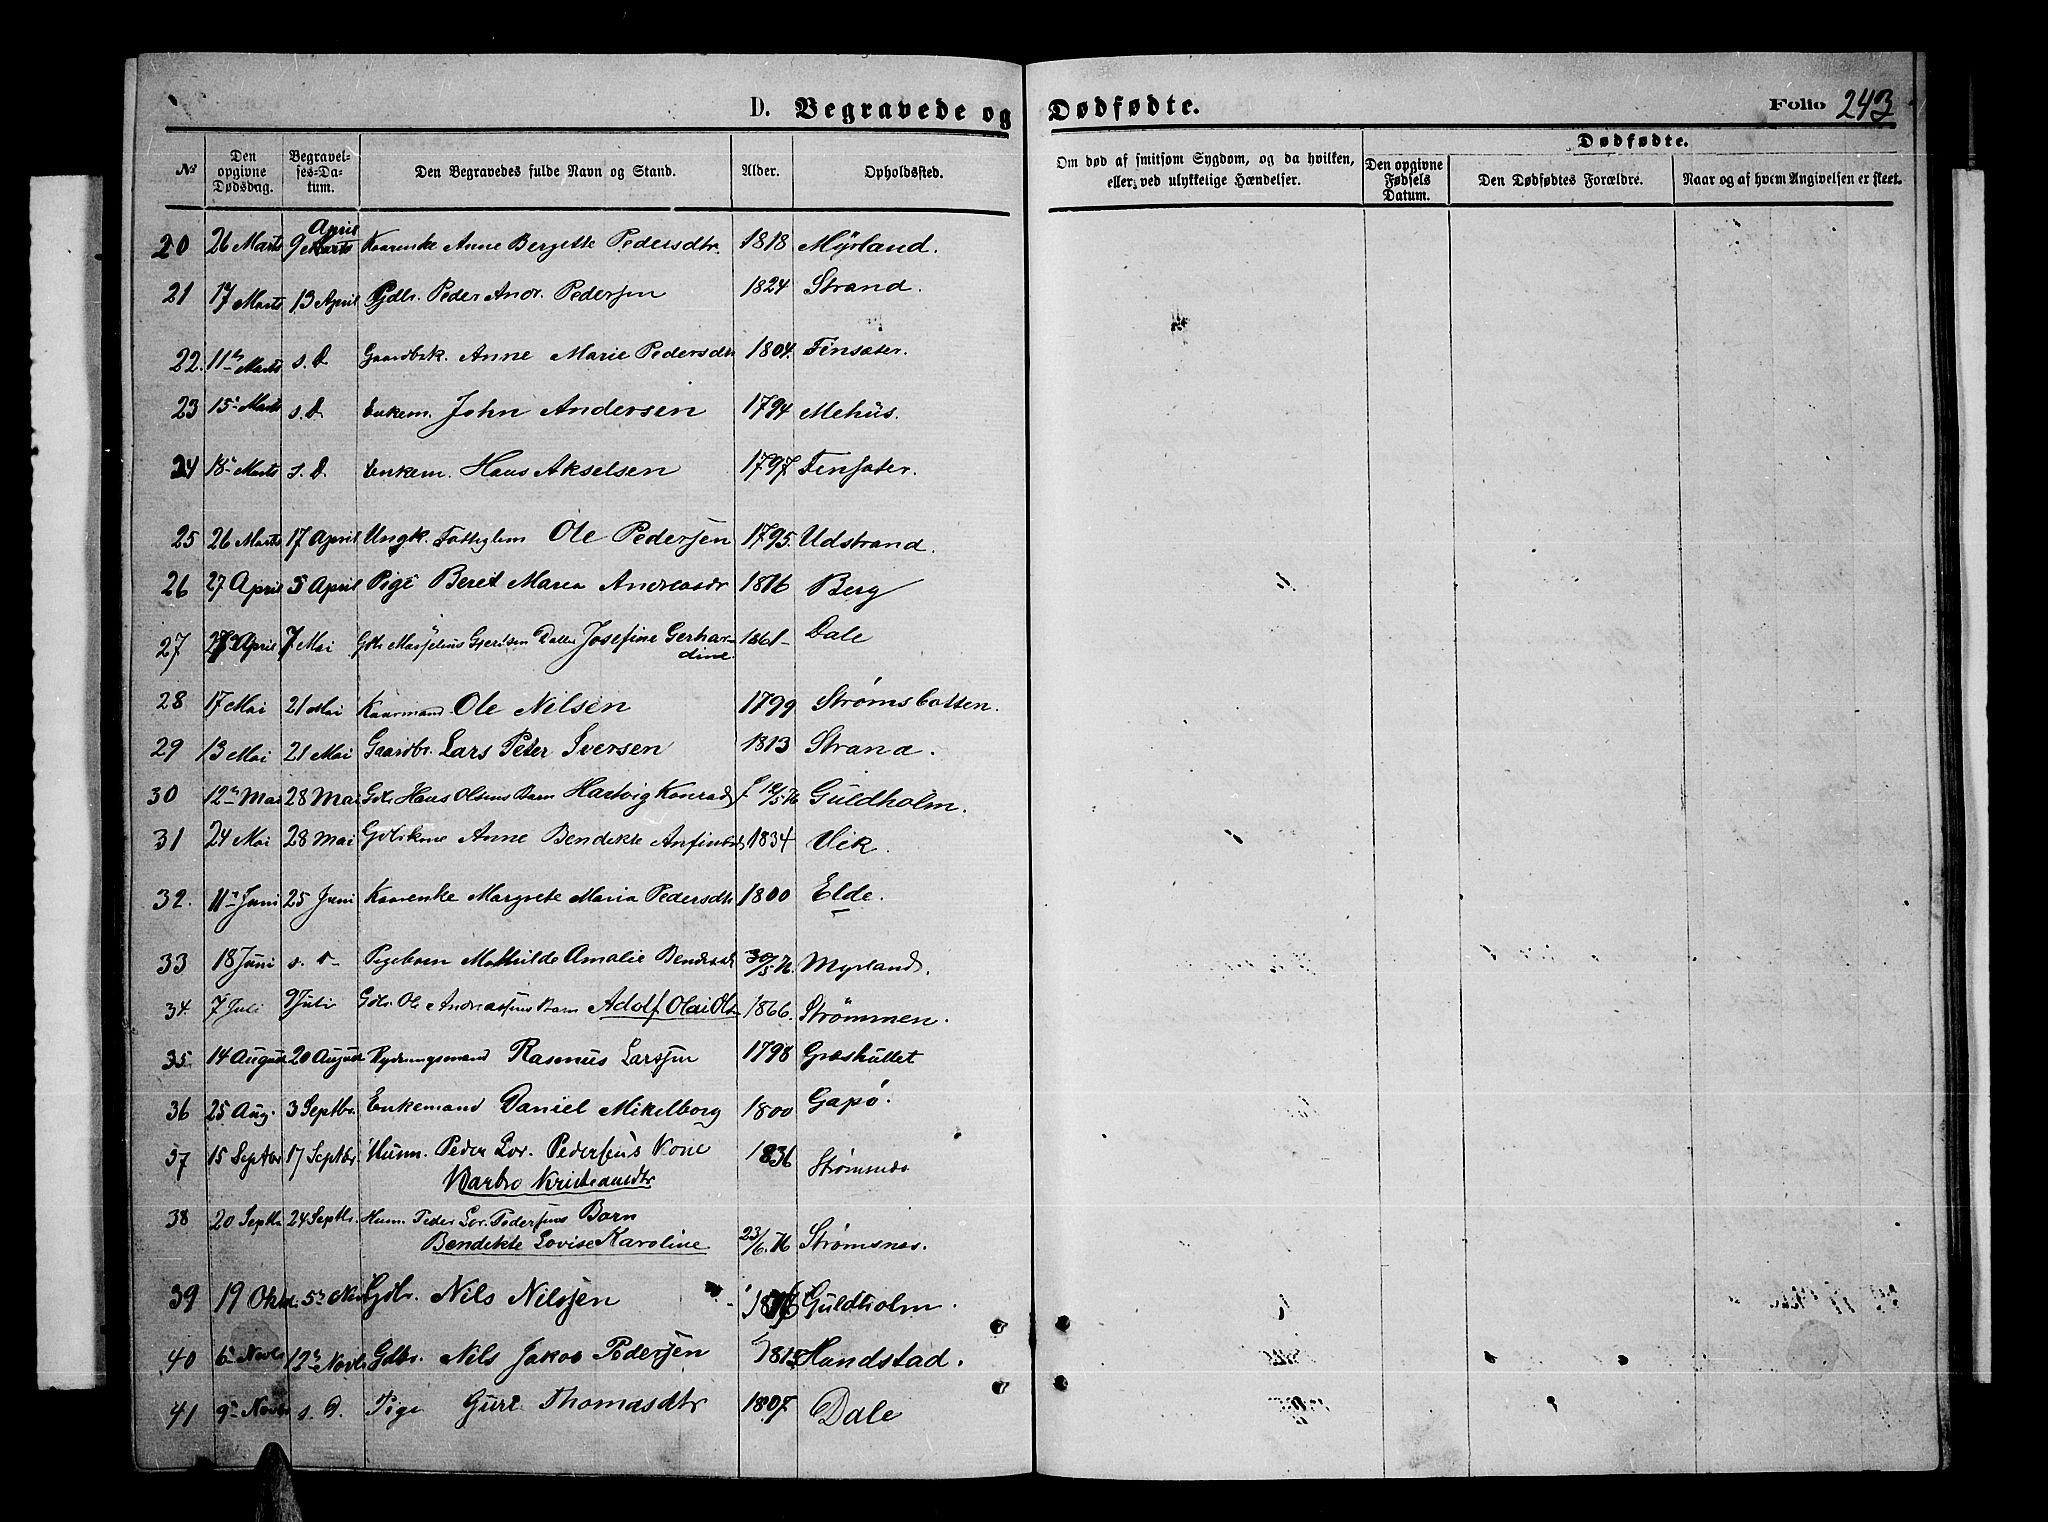 D. Begravede og Dødfødte. Folio 243
Dødfødte.
№ Den opgivne Dødsdag. Begravelses-Datum. Den Begravedes fulde Navn og Stand. Alder. Opholdssted. Om død af smitsom Sygdom, og da hvilken, eller ved ulykkelige Hændelser. Den opgivne Fødsels Datum. Den Dødfødtes Forældre. Naar og af hvem Angivelsen er skeet.
April
20 26 Marts 9 Marts Kaarenke Anne Bergette Pedersdtr. 1818 Myrland.
21 17 Marts 13 April Gdbr. Peder Andr. Pedersen 1824 Strand.
22. 11te Marts s. D Gaardbrk. Anne Marie Pedersdtr 1804. Finsæter.
23 15de Marts s. D. Enkem. John Andersen 1794 Mehus.
24 18de Marts s. D. Enkem. Hans Akselsen 1797 Finsæter.
25 26 Marts 17 April Ungk. Fattiglem Ole Pedersen 1795. Udstrand.
26 27 April 5 April Pige Beret Maria Andreasdr 1816 Berg
27 April 7 Mai Gdbr Datter Josefine Gerhar- 1861 Dale
dine.
28 17 Mai 21 Mai Kaarmand Ole Nilsen 1799 Strømsbotten.
29 13 Mai 21 Mai Gaardbr. Lars Peter Iversen 1813 Strand.
30 12te Mai 28 Mai Gdbr Hans Olsens Barn Hartvig Konrad f. 5.76 Guldholm.
31 24 Mai 28 Mai Gdbrkone Anne Bendikte Anfinsd 1834 Vik.
32. 11te Juni 25 Juni Kaarenke Margrete Maria Pedersdtr 1800 Elde.
33 18 Juni s. D Pigebarn Mathilde Amalie 30/5.76. Myrland.
34. 7 Juli 9 Juli Gdbr. Ole Andreassens Barn Adolf Olai Ols 1866. Strømmen.
35 14 August 20 August Rydningsmand Rasmus Larsen 1798 Græshullet
36 25 Aug. 3 Septbr. Enkemand Daniel Mikelborg 1800 Gapø.
37 15 Septbr 17 Septbr. Husm. Peder Lor. Pedersens Kone 1836 Strømsnes
Marbro Kristiansdtr
38 20 Septbr 24 Septbr. Husm. Peder Lor. Pedersens Barn
Bendikte Lovise Karoline 23/6.76 Strømsnes.
39 19 Oktbr. 5te Nov Gdbr. Nils Nilssen Guldholm.
40 6te Novbr 12te Novbr Gdbr. Nils Jakob Pedersen 1813 Hundstad.
41 9de Novbr s. D. Pige Guri Thomasdtr 1807 Dale